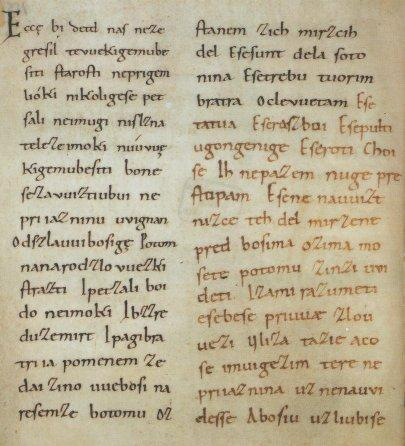 Eccę bi detd naſ neze
greſil tevuekigemube
ſiti ſtaroſti neprigem
lióki nikoligeſe pet
ſali neimugi niſlzna
teleſe imoki nuúvue
kigemubeſiti bone
ſezavuiztiubui ne
priiazninu uvignan
Odſzlauuiboſigę Potom
nanarodzlovuezki
ſtrazti Ipetzali boi
do neimoki Ibzzre
duzemirt Ipagibra
triia pomenem ze
dai zino vueboſi na
reſemze botomu oz
ſtanem zich mirzcih
del Eſeſunt dela ſoto
nina Eſetrebu tuorim
bratra Oclevuetam Eſe
tatua Eſerazboi Eſepulti
ugongenige Eſeroti Choi
ſe Ih nepazem nuge pre
ſtopam Eſene nauuiſt
nazce teh del mirzene
pred boſima ozima mo
ſete potomu zinzi uvi
deti Izami razumeti
eſebeſe priuuæ zlou
uezi Iliza tazie aco
ſe imugezim tere ne
priiaznina uznenauvi
deſſe Aboſiu uzliubiſe